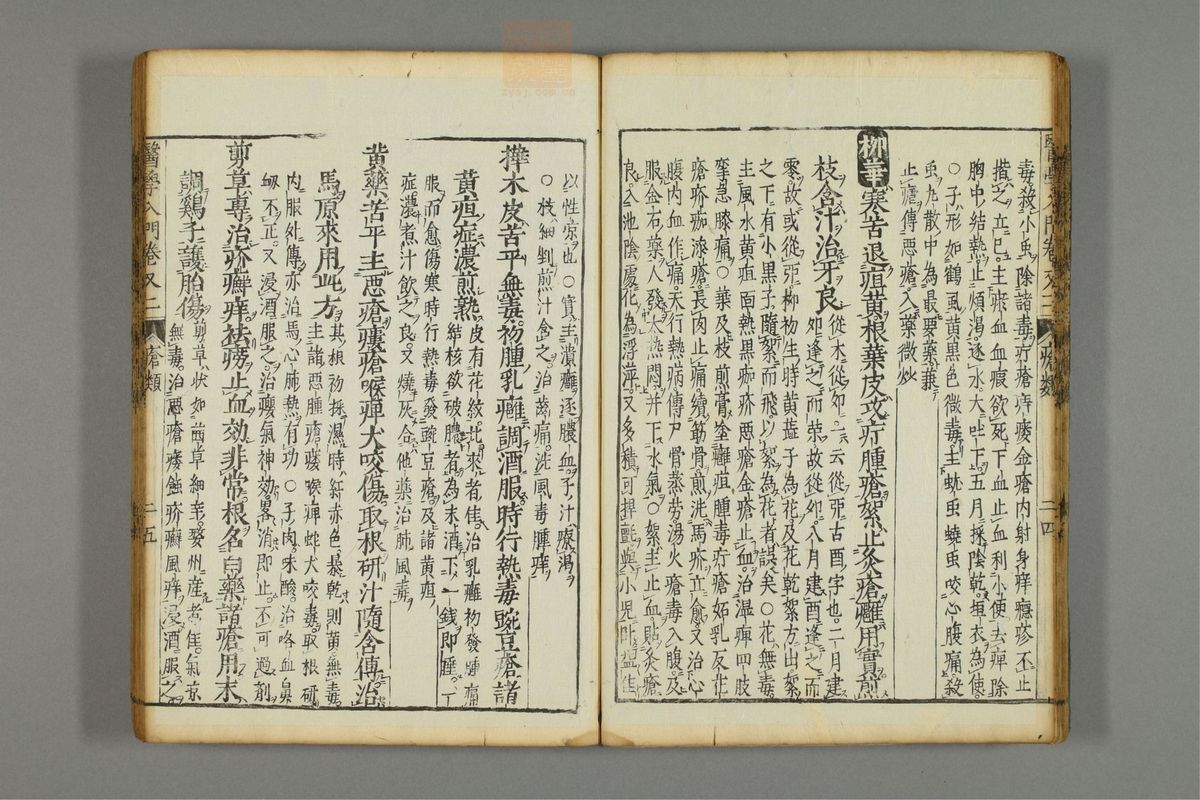 毒殺小虫除諸毒疔瘡痔瘻金瘡内射身痒癮疹不止
揩之立已主瘀血血瘕欲死下血止血利小便去痺除
胸中結熱止煩渇逐水大吐下五月採陰乾垣衣為使
○子形如鶴虱黄黒色微毒主蚘虫蟯虫咬心腹痛殺
虫丸散中為最要藥藤
止瘡傳悪瘡入藥微炒
柳華寒苦退疽黄根葉皮攻疔腫瘡絮止灸瘡癰用實煎
枝含汁治牙良
從木從卯一云從丣古酉字也二月建
卯逢之而荣故從卯八月建酉逢之而
零故或從丣柳初生時黄蕋子為花及花乾絮方出絮
之下有小黒子隨絮而飛以絮為花者誤矣○花無毒
主風水黄疸面熱黒痂疥悪瘡金瘡止血治湿痺四肢
攣急膝痛○葉及枝煎膏塗癰疽腫毒疔瘡妬乳反花
瘡疥痂漆瘡長肉止痛續筋骨煎洗馬疥立愈又治心
腹内血作痛天行熱病傳尸骨蒸勞湯火瘡毒入腹及
服金石藥人發大熱悶并下水氣○絮主止血貼灸瘡
良入池陰處化為浮萍又多積可捍氈與小児臥益佳
以性凉也○實主潰癰逐膿血子汁療渇
○枝細剉煎汁含之治齒痛洗風毒腫痒
樺木皮苦平無毒初腫乳癰調酒服時行熱毒豌豆瘡諸
黄疸症濃煎熟
皮有花紋北來者佳治乳癰初發腫痛
結核欲破膿者為末酒下一錢即睡一丁
服而愈傷寒時行熱毒發豌豆瘡及諸黄疸
症濃煮汁飲之良又燒灰合他藥治肺風毒
黄藥苦平主悪瘡瘻瘡喉痺犬咬傷取根研汁隨含傳治
馬原來用此方
其根初採濕時紅赤色暴乾則黄無毒
主諸悪腫瘡瘻喉痺蛇犬咬毒取根研
内服外傳亦治馬心肺熱有功○子肉味酸治咯血鼻
衂不正又浸酒服之治癭氣神効畧消即止不可過剤
剪草專治疥癬痒祛癆止血効非常根名白藥諸瘡用末
調鷄子護胎傷
剪草狀如茜草細辛婺州産者佳氣凉
無毒治悪瘡瘻蝕疥癬風痒浸酒服之
醫學入門卷又二
瘡類
二四
醫學入門卷又二
瘡類
二五
zysj.com.cn